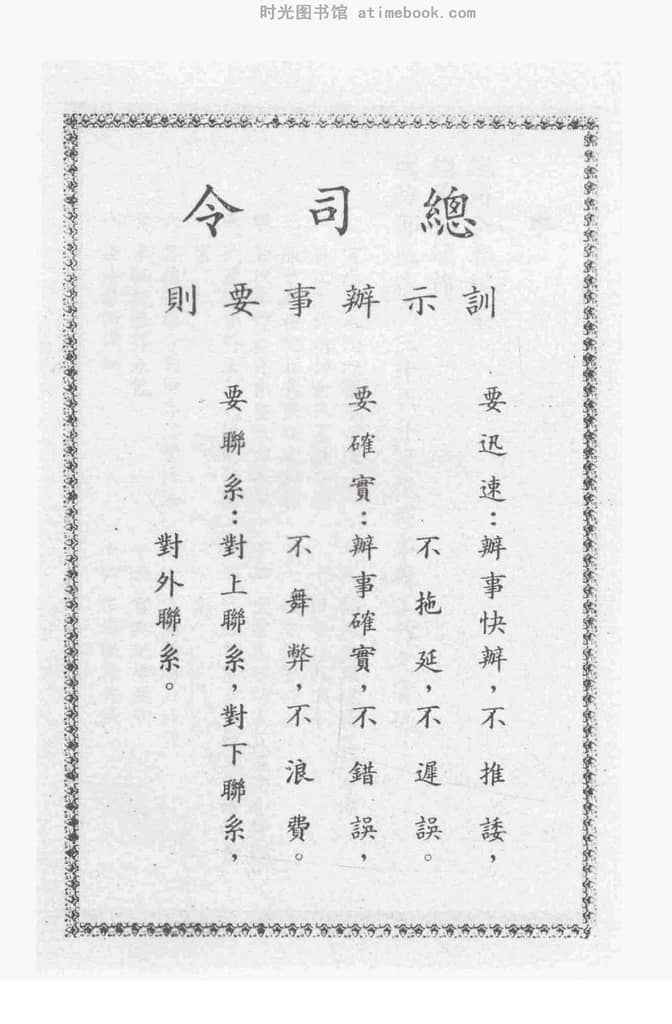 时光图书馆 atimebook.com
總司令
訓示辦事要則
要迅速：辦事快辦，不推諉，
不拖延，不遲誤。
要確實：辦事確實，不錯誤，
不舞弊，不浪費。
要聯系：對上聯系，對下聯系，
對外聯系。